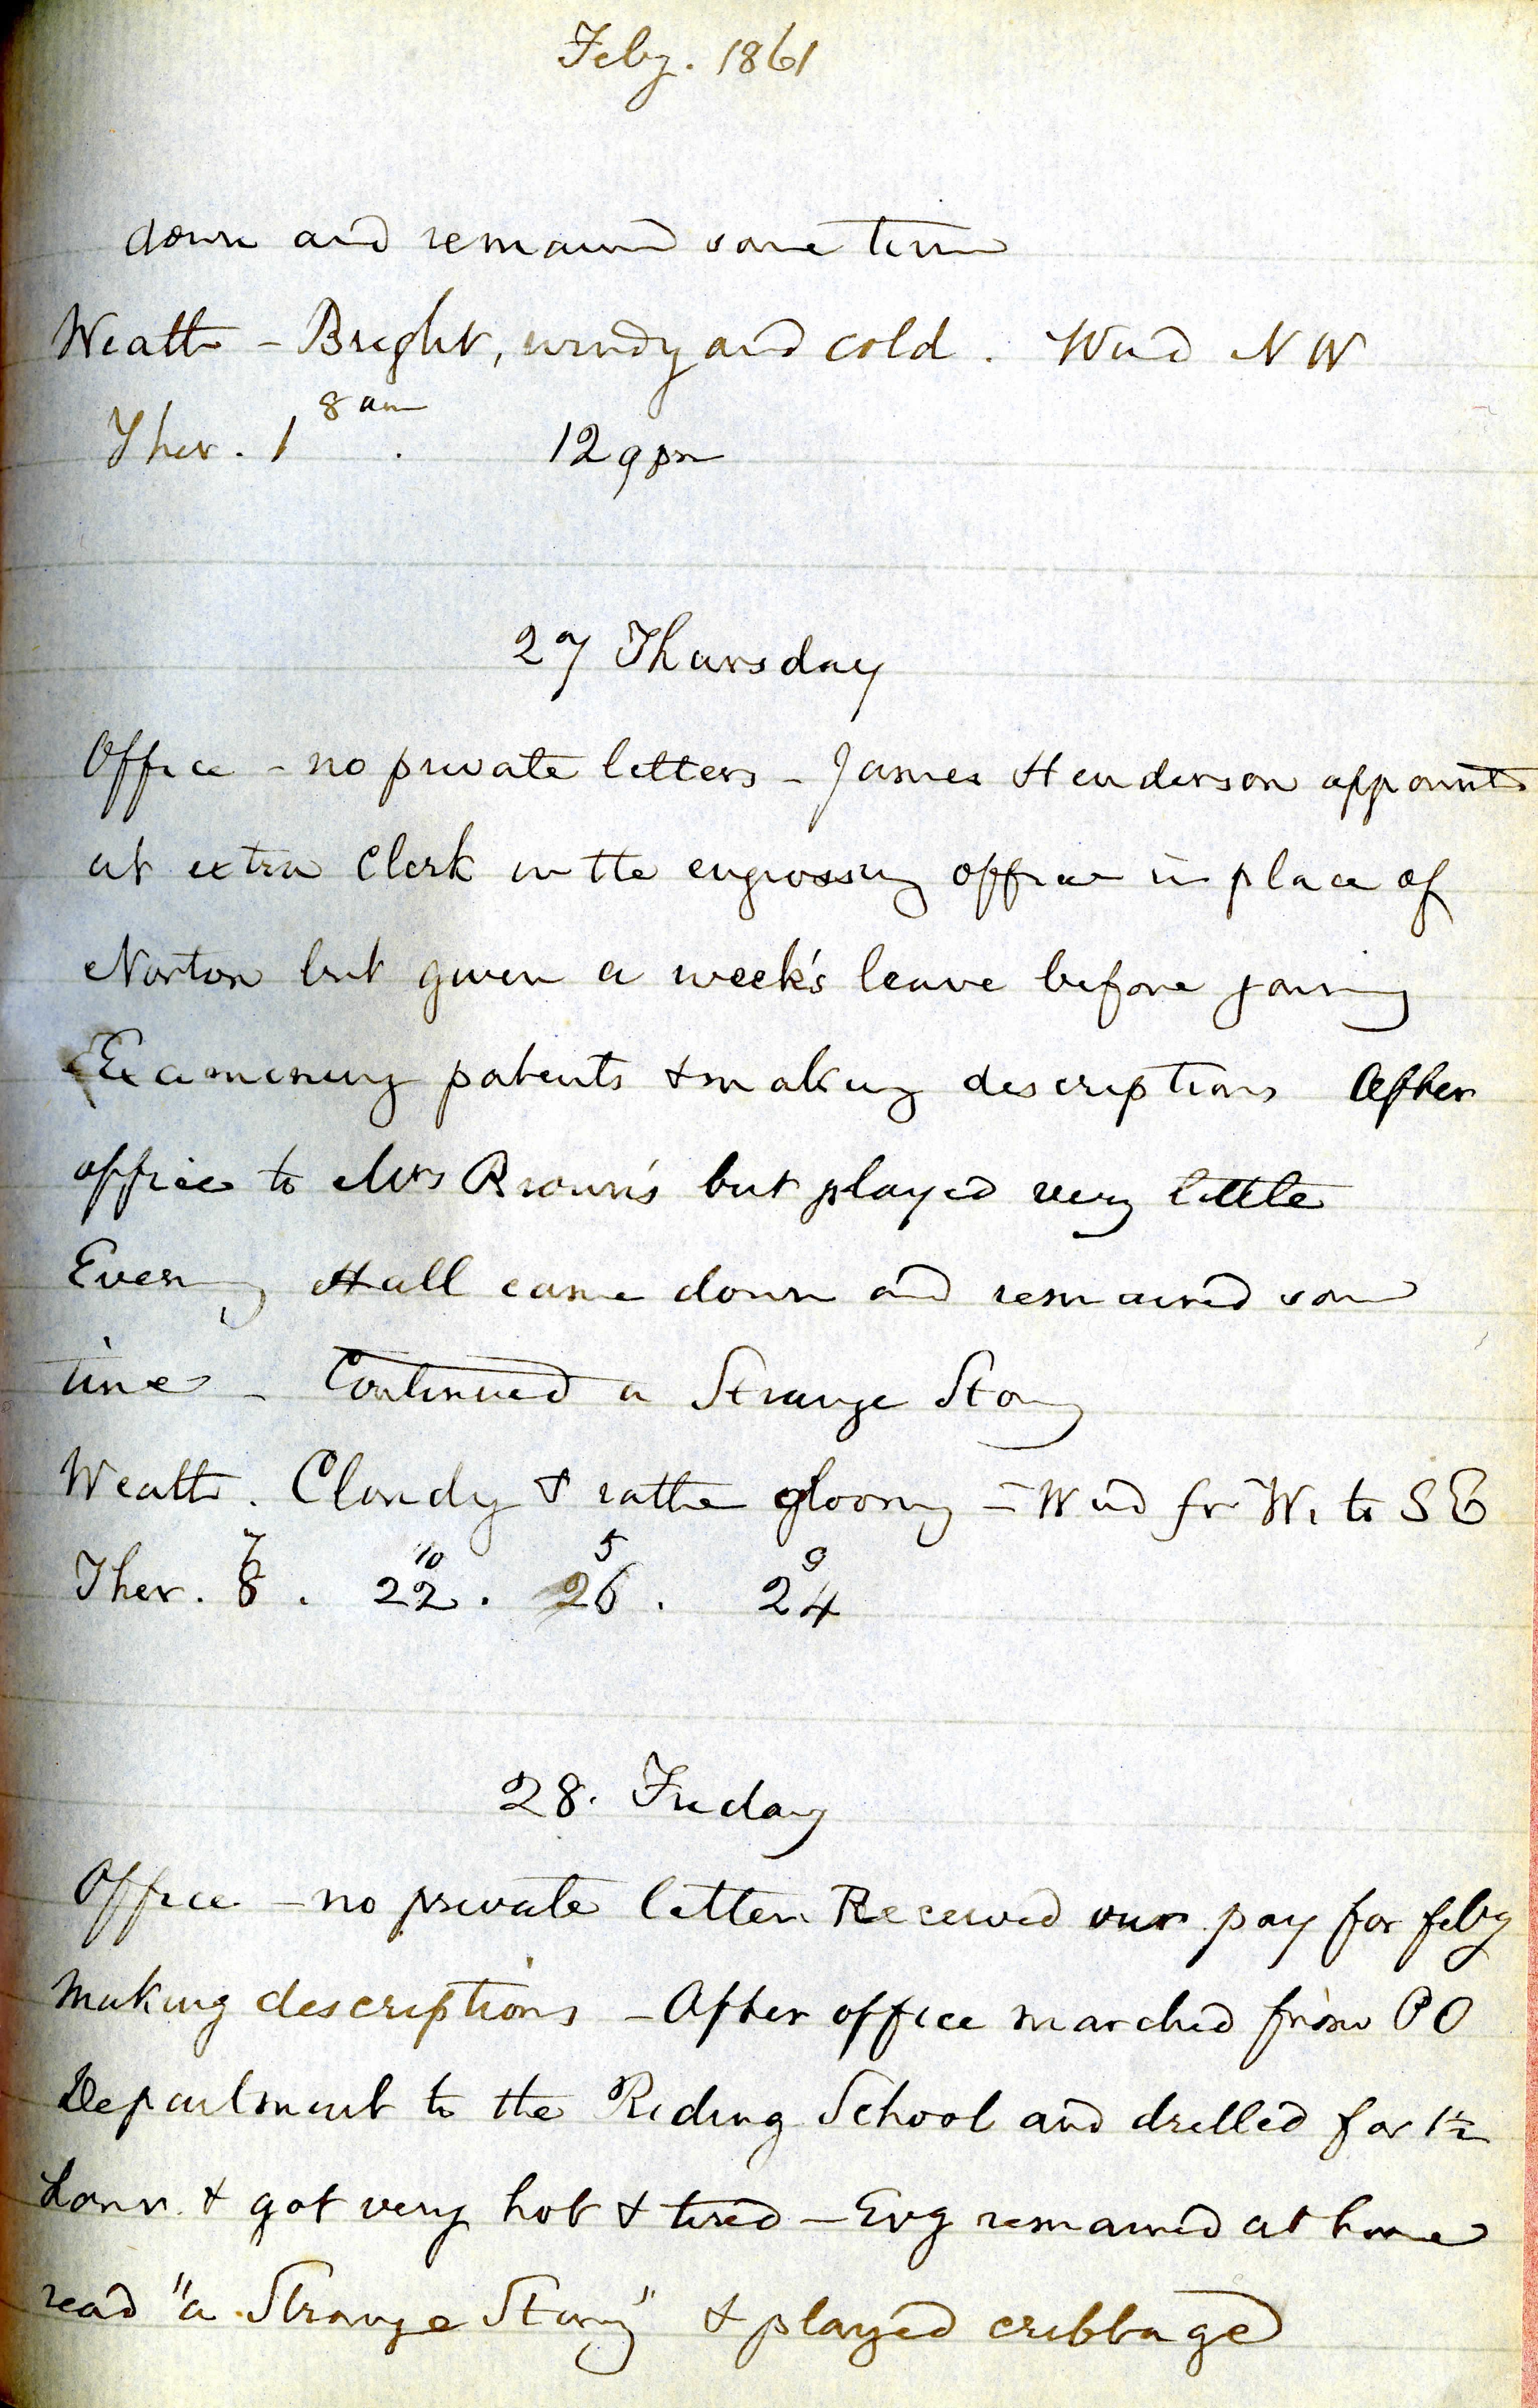 Feby. 1861
down and remained some time
Weathr - Bright, windy and cold. Wind NW
8 am
Ther. 1 . 12 9 pm
27 Thursday
Office - no private letters - James Henderson appointed
at extra Clerk in the engrossing office in place of
Norton but given a week's leave before joining
Examening patents & making descriptions After
office to Mrs Brown's but played very little
Evening Hall came down and remained some
time - Continued a Strange Story
Weathr. Cloudy & rather gloomy - Wind fr W. to SE
7 10 5 9
Ther. 8. 22. 26. 24
28. Friday
Office - no private letters Received our pay for feby
Making descriptions - After office marched from PO
Department to the Riding School and drilled for 1½
hour & got very hot & tired - Evg remained at home
read "a Strange Story" & played cribbage